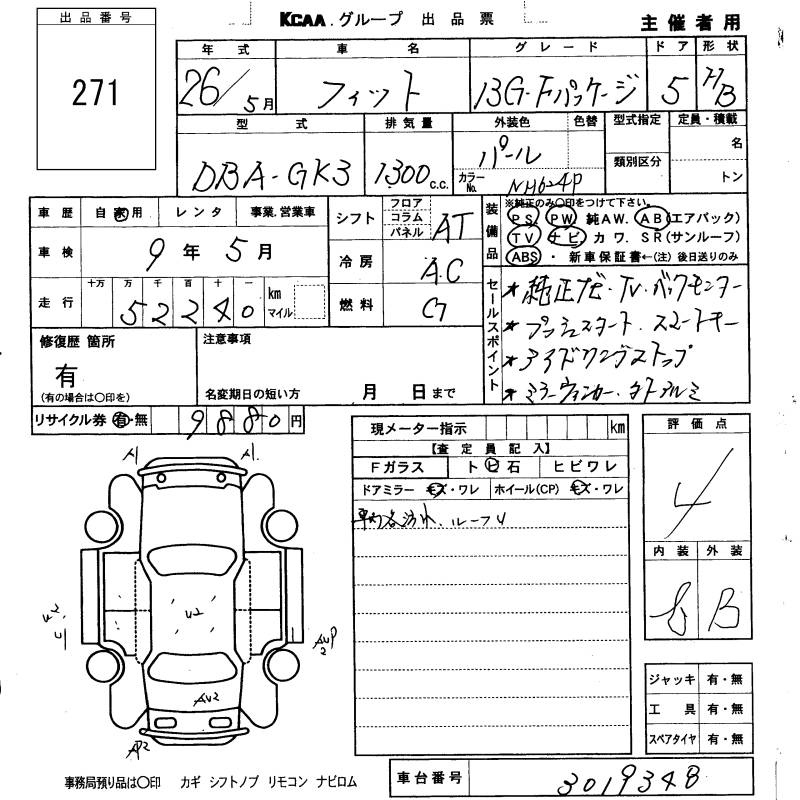 出品番号
271
KCAA.グループ 出品票
主催者用
年式 車名 グレード ドア 形状
26/5月 フィット 13G・Fパッケージ 5 H/B
型式 排気量 外装色 色替 型式指定 定員・積載
DBA-GK3 1300c.c. パール 名
カラーNo. NH624P 類別区分 トン
車歴 自家用 レンタ 事業.営業車
シフト フロア コラム パネル AT
装備品 ※純正のみ〇印をつけて下さい。
PS PW 純AW. AB(エアバック)
TV ナビ カワ. SR(サンルーフ)
ABS ・ 新車保証書←(注)後日送りのみ
車検 9年5月
冷房 A.C
走行 十万 万 千 百 十 一
52240 km マイル
燃料 G
セールスポイント
*純正ナビ・TV・バックモニター
*プッシュスタート.スマートキー
*アイドリングストップ
*ミラーウィンカー.
修復歴 箇所
有
(有の場合は〇印を)
注意事項
名変期日の短い方 月 日まで
リサイクル券 有・無 9880円
現メーター指示 km
【査定員記入】
Fガラス トビ石 ヒビワレ
ドアミラー キズ・ワレ ホイール(CP) キズ・ワレ
車内汚れ.ルーフU
評価点
4
内装 外装
B
A1
A1.
U2
AU2
AP2
ジャッキ 有・無
工具 有・無
スペアタイヤ 有・無
事務局預り品は〇印 カギ シフトノブ リモコン ナビロム
車台番号 3019348